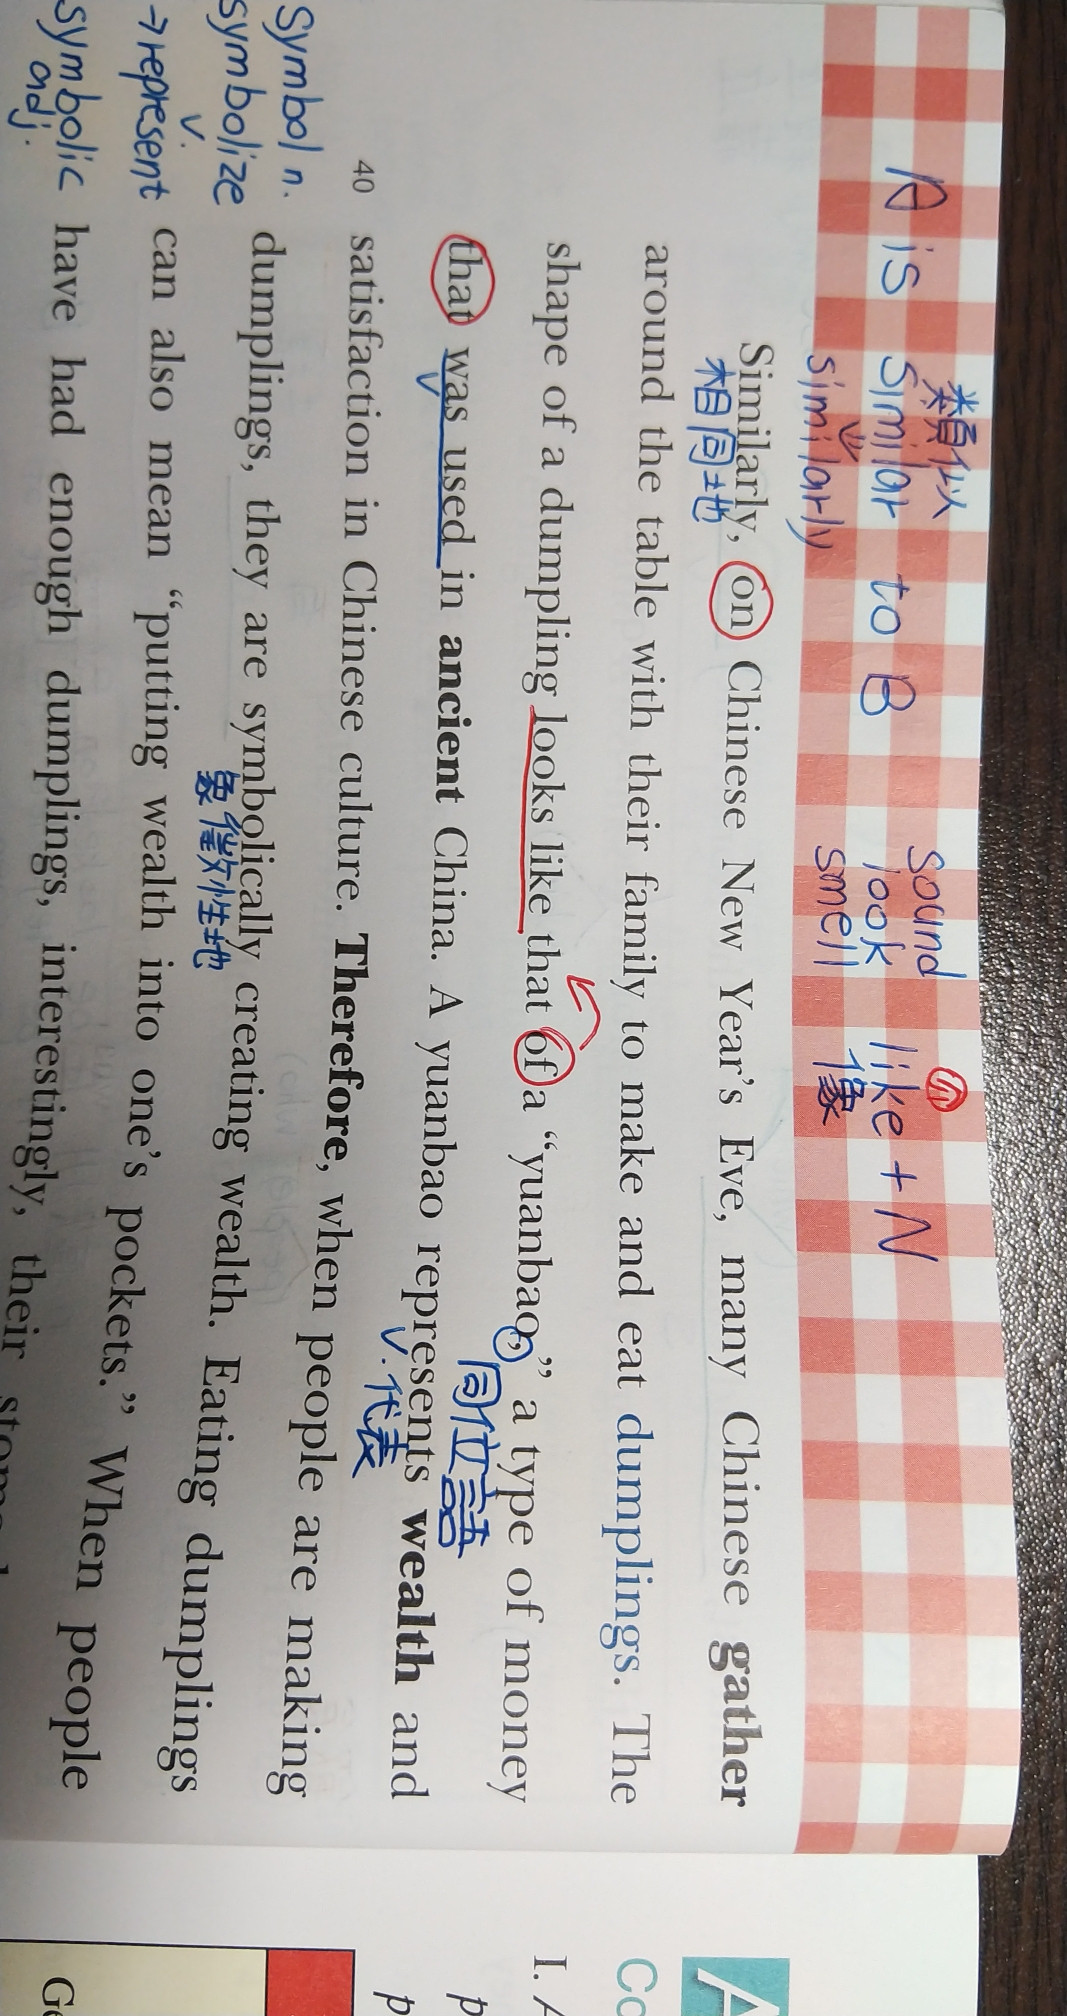 類似
A is similar to B
similarly
sound
look
smell
like + N
介
像
Similarly, on Chinese New Year's Eve, many Chinese gather
相同地
around the table with their family to make and eat dumplings. The
shape of a dumpling looks like that of a “yuanbao,” a type of money
同位語
that was used in ancient China. A yuanbao represents wealth and
v.
v. 代表
40 satisfaction in Chinese culture. Therefore, when people are making
Symbol n.
dumplings, they are symbolically creating wealth. Eating dumplings
symbolize
v.
象徵性地
→represent
can also mean “putting wealth into one's pockets.” When people
symbolic
adj.
have had enough dumplings, interestingly, their
A
Co
I. A
p
p
Ge